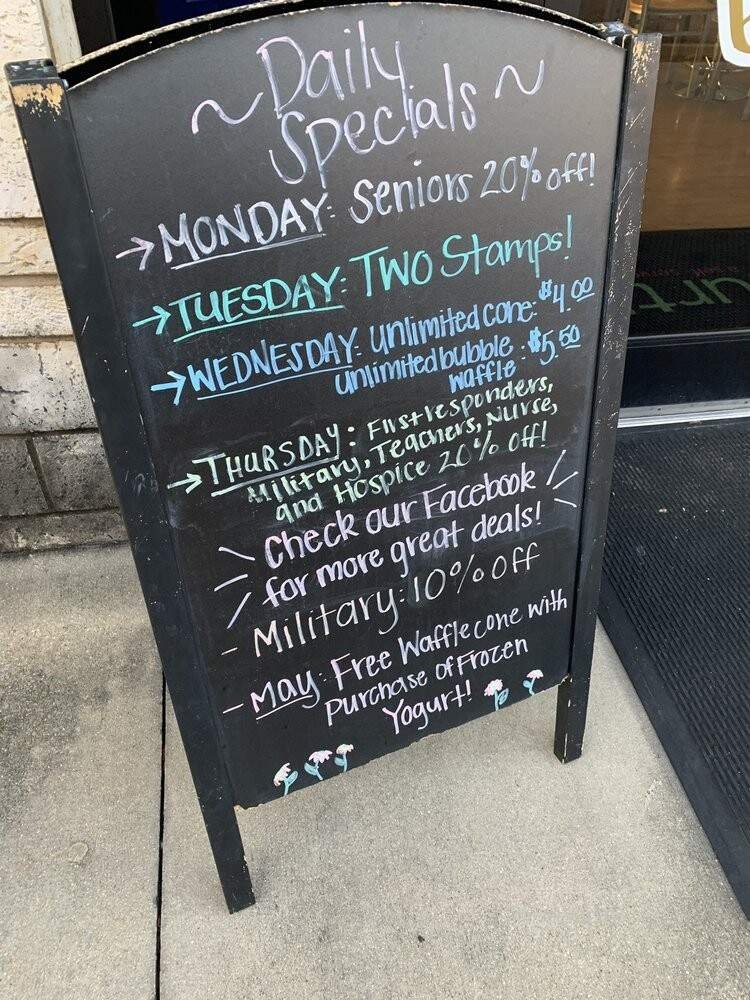 ~ Daily ~
Specials
→ MONDAY: Seniors 20% off!
→ TUESDAY: TWO Stamps!
→ WEDNESDAY: unlimited cone: $4.00
unlimited bubble : $5.50
waffle
→ THURSDAY: First responders,
Military, Teachers, Nurse,
and Hospice 20% off!
Check our Facebook
for more great deals!
- Military: 10% off
- May: Free Waffle cone with
purchase of Frozen
Yogurt!